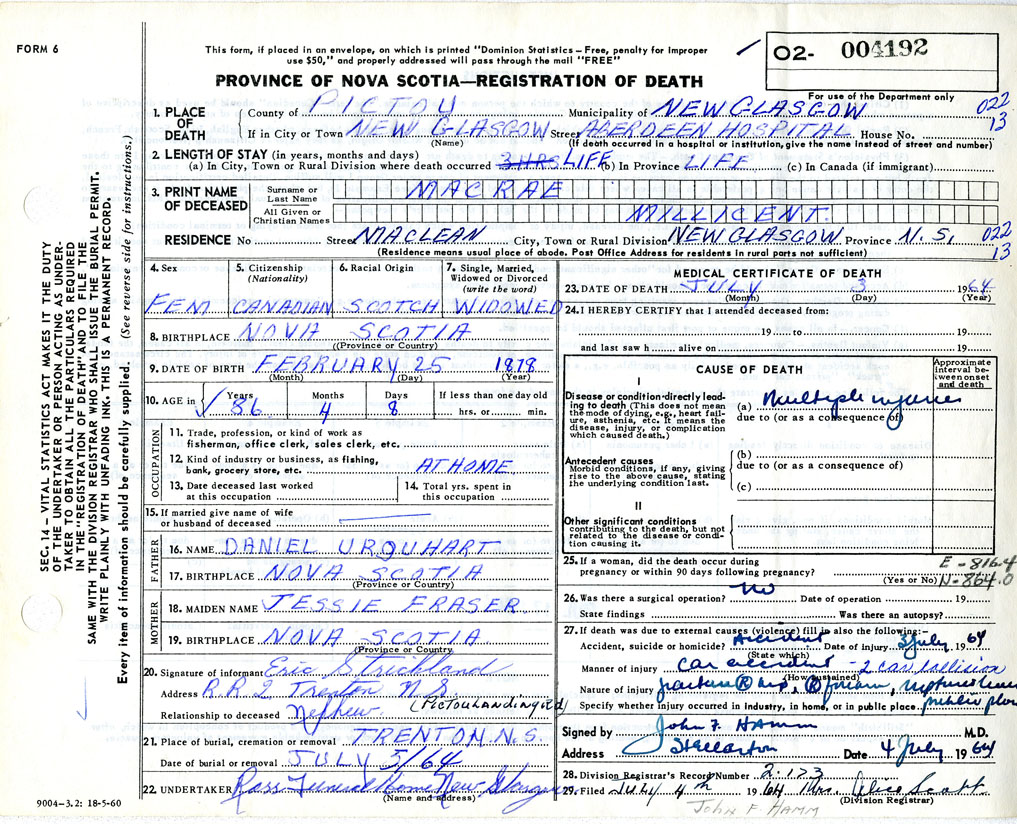 FORM 6
This form, if placed in an envelope, on which is printed "Dominion Statistics – Free, penalty for improper
use $50," and properly addressed will pass through the mail "FREE"
PROVINCE OF NOVA SCOTIA—REGISTRATION OF DEATH
O2- 004192
For use of the Department only
022
13
1. PLACE OF DEATH
County of PICTOU Municipality of NEW GLASGOW
If in City or Town NEW GLASGOW Street ABERDEEN HOSPITAL House No.
(Name) (If death occurred in a hospital or institution, give the name instead of street and number)
2. LENGTH OF STAY (in years, months and days)
(a) In City, Town or Rural Division where death occurred 3 HRS LIFE (b) In Province LIFE (c) In Canada (if immigrant)
3. PRINT NAME OF DECEASED
Surname or Last Name MACRAE
All Given or Christian Names MILLICENT
RESIDENCE No Street MACLEAN City, Town or Rural Division NEW GLASGOW Province N.S. 022
13
(Residence means usual place of abode. Post Office Address for residents in rural parts not sufficient)
4. Sex 5. Citizenship (Nationality) 6. Racial Origin 7. Single, Married, Widowed or Divorced (write the word)
FEM CANADIAN SCOTCH WIDOWED
8. BIRTHPLACE NOVA SCOTIA
(Province or Country)
9. DATE OF BIRTH FEBRUARY 25 1878
(Month) (Day) (Year)
10. AGE in Years Months Days If less than one day old
86 4 8 hrs. or min.
OCCUPATION
11. Trade, profession, or kind of work as
fisherman, office clerk, sales clerk, etc.
12. Kind of industry or business, as fishing,
bank, grocery store, etc. AT HOME
13. Date deceased last worked
at this occupation
14. Total yrs. spent in
this occupation
15. If married give name of wife
or husband of deceased
FATHER
16. NAME DANIEL URQUHART
17. BIRTHPLACE NOVA SCOTIA
(Province or Country)
MOTHER
18. MAIDEN NAME JESSIE FRASER
19. BIRTHPLACE NOVA SCOTIA
(Province or Country)
20. Signature of informant Eric Strickland
Address R.R.2 Trenton N.S.
Relationship to deceased Nephew
21. Place of burial, cremation or removal TRENTON N.S.
Date of burial or removal JULY 5/64
22. UNDERTAKER Ross Funeral Home New Glasgow
(Name and address)
9004—3.2: 18-5-60
MEDICAL CERTIFICATE OF DEATH
23. DATE OF DEATH JULY 3 1964
(Month) (Day) (Year)
24. I HEREBY CERTIFY that I attended deceased from:
19 to 19
and last saw h alive on 19
CAUSE OF DEATH
Approximate interval between onset and death
I
Disease or condition directly leading to death (This does not mean the mode of dying, e.g., heart failure, asthenia, etc. It means the disease, injury, or complication which caused death.)
(a) Multiple injuries
due to (or as a consequence of)
Antecedent causes
Morbid conditions, if any, giving rise to the above cause, stating the underlying condition last.
(b)
due to (or as a consequence of)
(c)
II
Other significant conditions
contributing to the death, but not related to the disease or condition causing it.
25. If a woman, did the death occur during
pregnancy or within 90 days following pregnancy?
(Yes or No)
E-816.4
N-864.0
26. Was there a surgical operation? No Date of operation 19
State findings Was there an autopsy?
27. If death was due to external causes (violence) fill in also the following:-
Accident, suicide or homicide? Accident Date of injury 3 July 1964
(State which)
Manner of injury car accident - 2 car collision
(How sustained)
Nature of injury fracture (R) hip, (R) forearm, ruptured
Specify whether injury occurred in industry, in home, or in public place public place
Signed by John F. Hamm M.D.
Address Stellarton Date 4 July 1964
28. Division Registrar's Record Number 2-173
29. Filed July 4th 1964 Mrs. Alice Scott
(Division Registrar)
John F Hamm
SEC. 14 – VITAL STATISTICS ACT MAKES IT THE DUTY
OF THE UNDERTAKER OR PERSON ACTING AS UNDER-
TAKER TO OBTAIN ALL THE PARTICULARS REQUIRED
IN THE "REGISTRATION OF DEATH" AND TO FILE THE
SAME WITH THE DIVISION REGISTRAR WHO SHALL ISSUE THE BURIAL PERMIT.
WRITE PLAINLY WITH UNFADING INK. THIS IS A PERMANENT RECORD.
Every item of information should be carefully supplied. (See reverse side for instructions.)